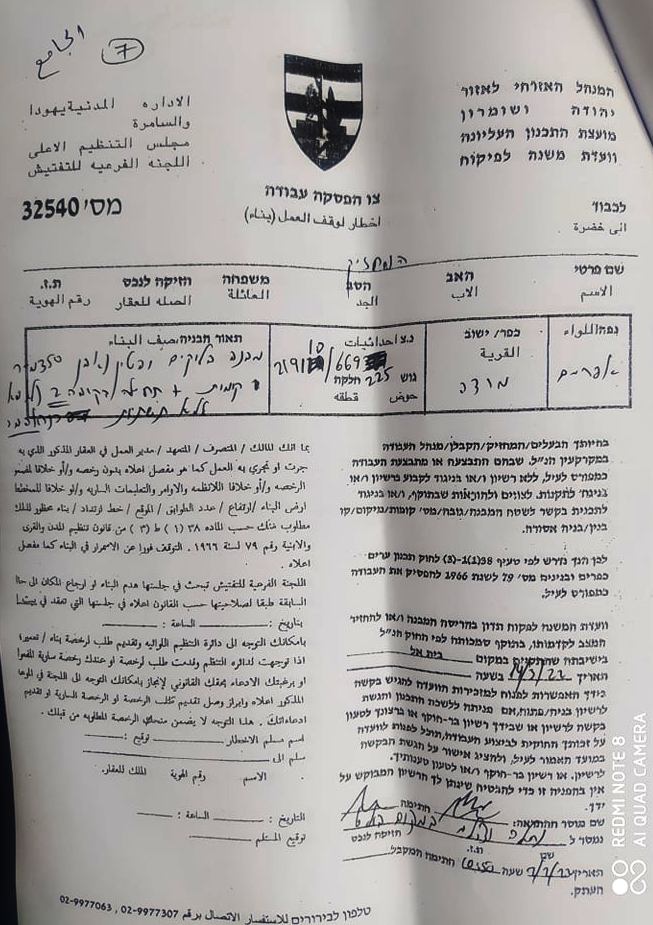 الجامع
7
המנהל האזרחי לאזור
יהודה ושומרון
מועצת התכנון העליונה
וועדת משנה לפיקוח
الاداره المدنية يهودا
والسامرة
مجلس التنظيم الاعلى
اللجنه الفرعيه للتفتيش
צו הפסקה עבודה
اخطار لوقف العمل (بناء)
מס' 32540
לכבוד
الى خضرة
המחזיק
שם פרטי האב הסב משפחה חזיקה לנכס ת.ז.
الاسم الاب الجد العائلة الصله للعقار رقم الهوية
נפה/ללוא
אפרים
כפר/ ישוב
القرية
נ.צ אחדאثيات
גוש חלקה
حوض قطعه
תאור הבניה/صيف البناء
מבנה בלוקים
350
בחיותך הבעלים/המחזיק/הקבלן/מנהל העבודה
במקרקעין הנ"ל, שבהם התבצעה או מתבצעת העבודה
כמפורט לעיל, ללא רשיון ו/או בניגוד לקבוע ברשיון ו/או
בניגוד לתקנות, לצווים ולהוראות שבתוקף, ו/או בניגוד
לתכנית בקשר לשטח המבנה/גובה/מס' קומות/מיקום/קו
בנין/בניה אסורה.
לכן הנך נדרש לפי סעיף 38(1)-(3) לחוק תכנון ערים
כפרים ובנינים מס' 79 לשנת 1966 להפסיק את העבודה
כמפורט לעיל.
וועדת המשנה לפקוח תדון בהריסת המבנה ו/או להחזיר
המצב לקדמותו, בתוקף סמכותה לפי החוק הנ"ל
בישיבתה שתתקיים במקום בית אל
התאריך 14/3/22 בשעה
בידך האפשרות לפנות למזכירות הוועדה להגיש בקשה
לרשיון בניה/פתוח, אם פניתה ללשכת התכנון והגשת
בקשה לרשיון או שבידך רשיון בר-חוקף או ברצונך לטעון
על זכותך החוקית לביצוע העבודה, תוכל לפנות לוועדה
במועד האמור לעיל, ולהציג אישור על הגשת הבקשה
לרשיון, או רשיון בר-חוקף ו/או לטעון טענותיך.
אין בהפניה זו כדי להבטיח שינתן לך הרשיון המבוקש על
ידך.
שם מוסר ההתראה: חתימה
נמסר ל חזיקה לנכס
שם ת.ז.
התאריך שעה חתימה המקבל
העתק.
بما انك المالك / المتصرف / المتعهد / مدير العمل في العقار المذكور الذي به
جرت او تجري به العمل كما هو مفصل اعلاه بدون رخصه و/او خلافا
الرخصه و/او خلافا للانظمه والاوامر والتعليمات الساريه و/او خلافا للمخطط
ارض البناء /اوتفاع / عدد الطوابق / الموقع / خط ارتداد / بناء محظور لذلك
مطلوب منك حسب الماده ٣٨ (١) ط (٣) من قانون تنظيم المدن والقرى
والابنية رقم ٧٩ لسنة ١٩٦٦. التوقف فورا عن الاستمرار في البناء كما مفصل
اعلاه.
اللجنة الفرعية للتفتيش تبحث في جلستها هدم البناء او ارجاع المكان الى حاله
السابقة طبقا لصلاحيتها حسب القانون اعلاه في جلستها التي تعقد في
بتاريخ: الساعة:
بامكانك التوجه الى دائرة التنظيم اللوائيه وتقديم طلب لرخصة بناء / تعمير؛
اذا توجهت لدائره التنظيم وقدمت طلب لرخصة او عندك رخصة سارية
او برغبتك الادعاء بحقك القانوني لإنجاز بامكانك التوجه الى اللجنة في
المذكور اعلاه وابراز وصل تقديم طلب الرخصة او الرخصة السارية او تقديم
ادعاءاتك. هذا التوجه لا يضمن منحك الرخصة المطلوبه من قبلك.
اسم مسلم الاخطار توقيع:
سلم الى
الاسم رقم الهوية المالك للعقار.
التاريخ: الساعة:
توقيع المستلم
טלפון לבירורים للاستفسار الاتصال برقم 02-9977307, 02-9977063
REDMI NOTE 8
AI QUAD CAMERA